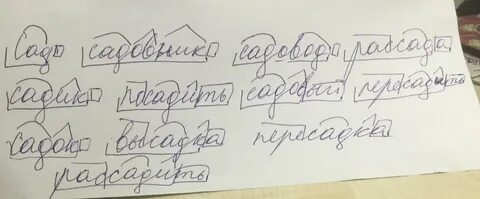 сад садовник садовод рассада
садик посадить садовый пересадить
садок высадка пересадка
рассадить